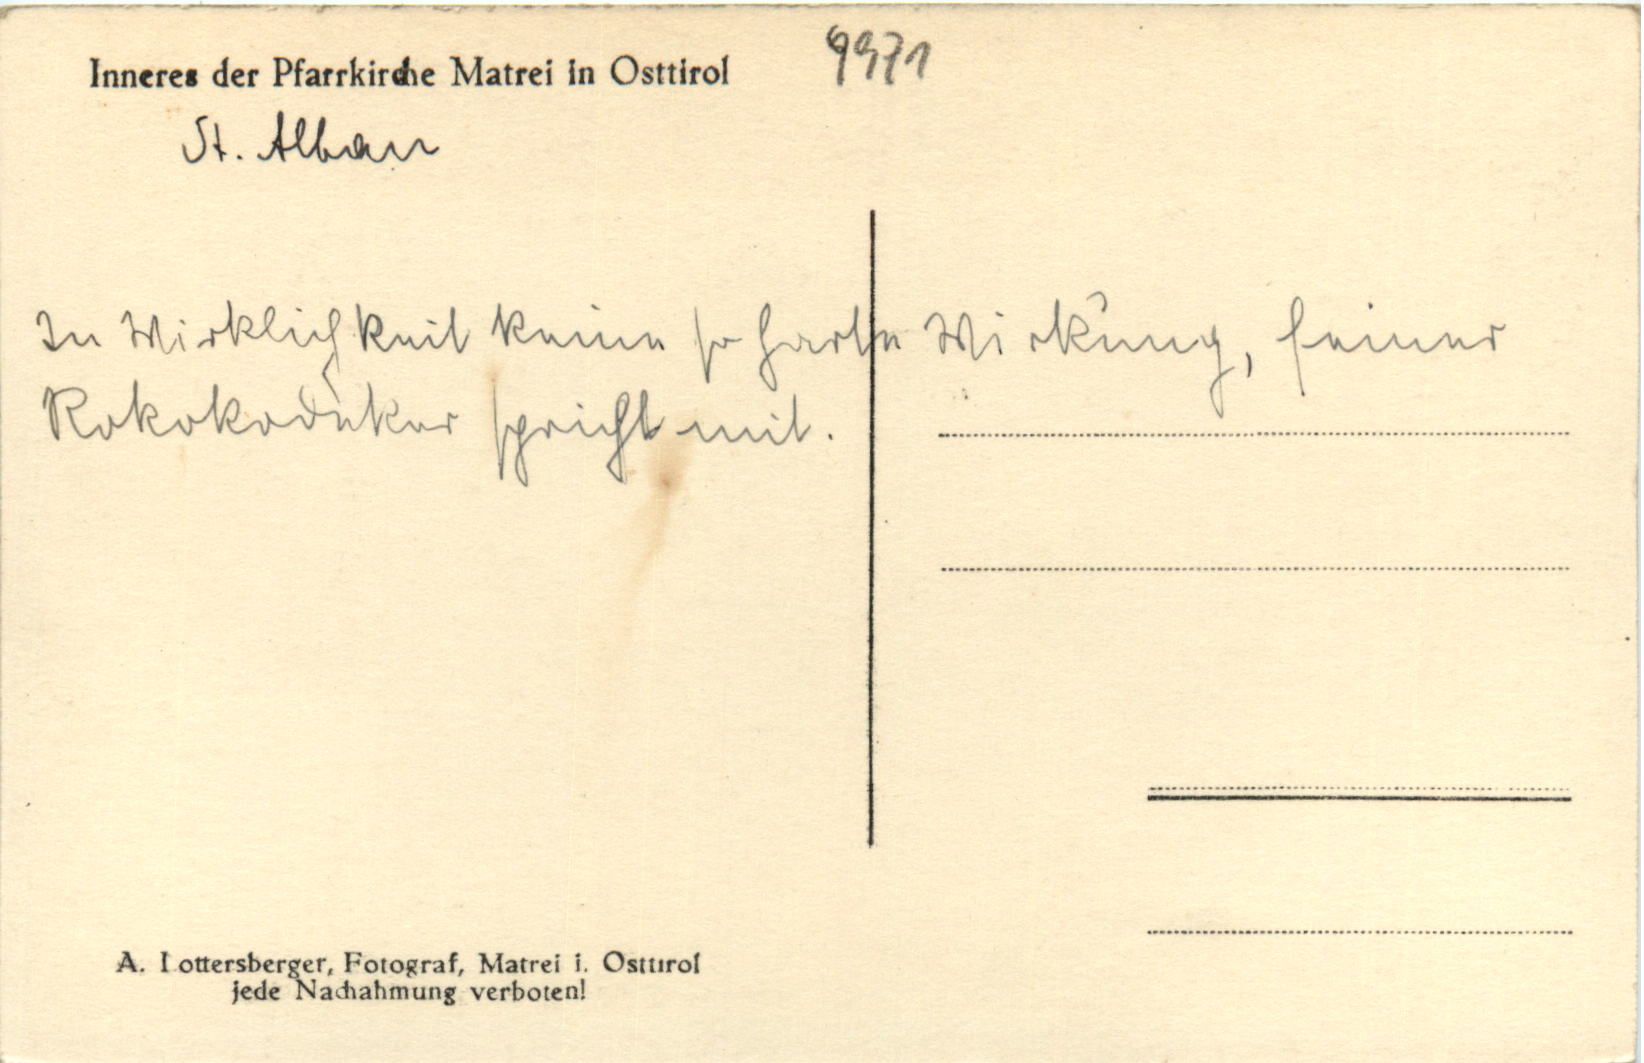 Inneres der Pfarrkirche Matrei in Osttirol
9971
St. Alban
In Wirklichkeit keine so harte Wirkung, feiner
Rokokodekor spricht mit.
A. Lottersberger, Fotograf, Matrei i. Osttirol
jede Nachahmung verboten!